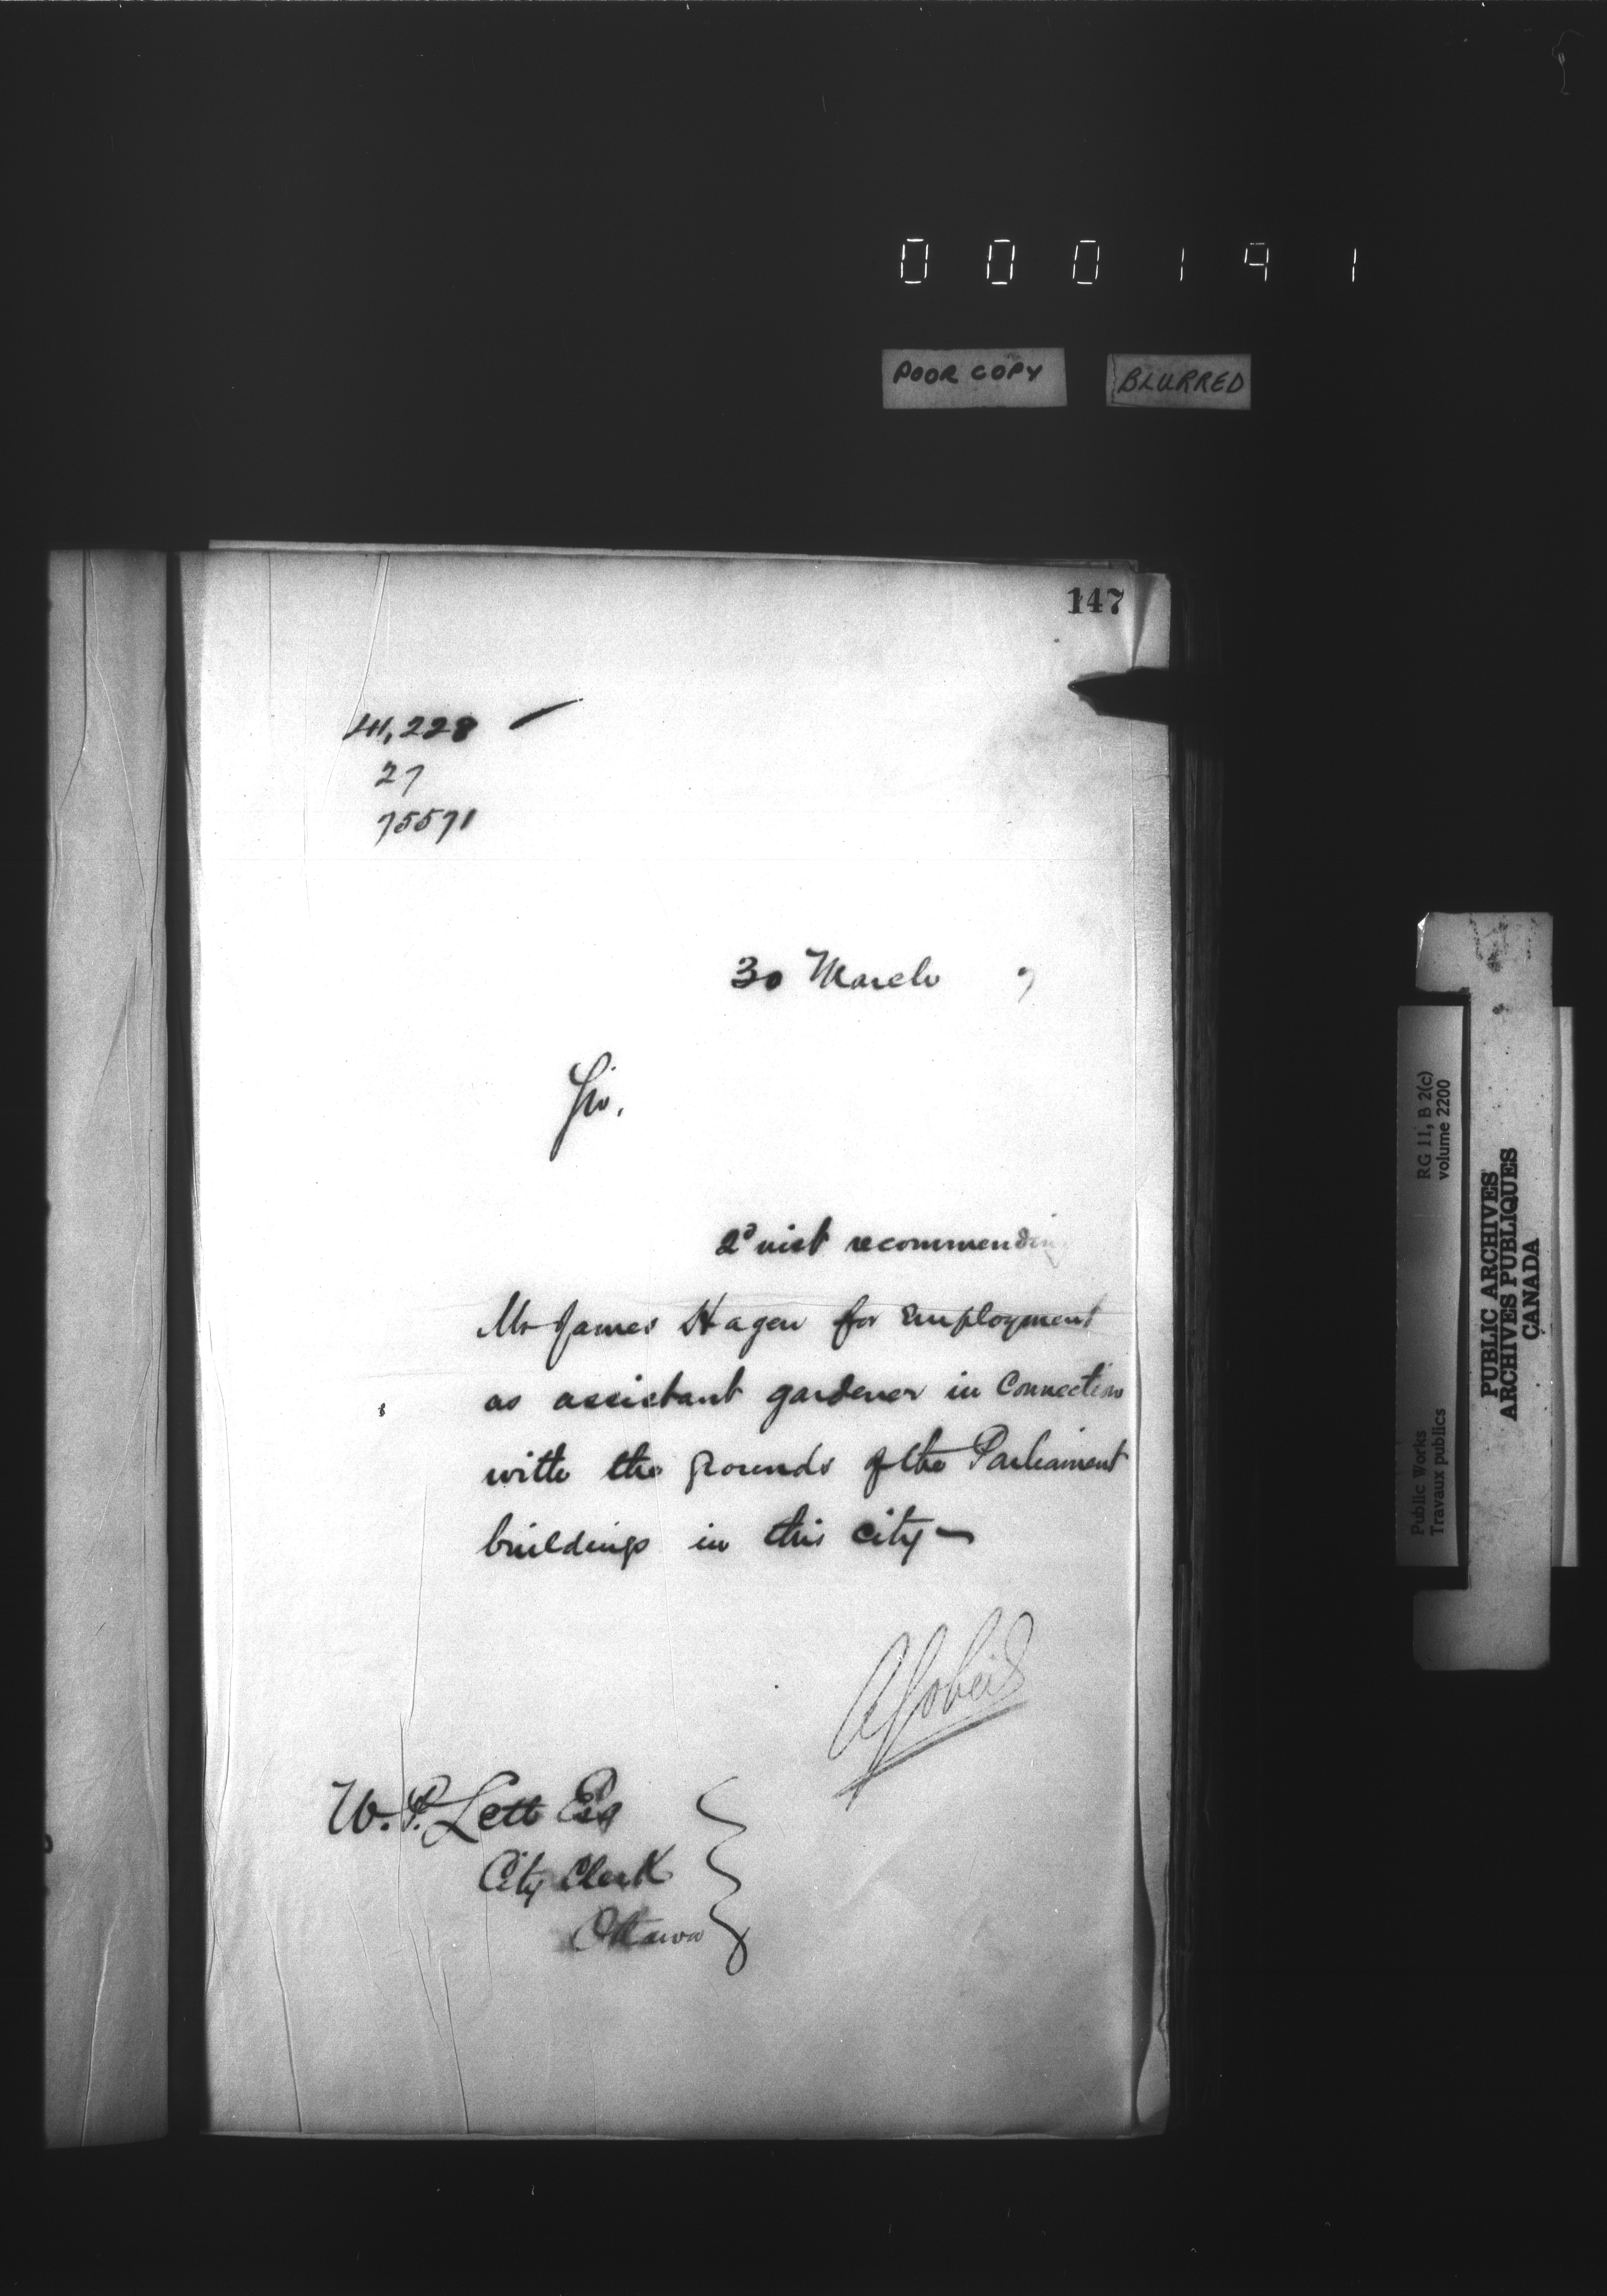 000191
POOR COPY
BLURRED
147
41,228
27
75571
30 March 7
Sir,
2d inst recommendin
Mr James Hagen for Employment
as assistant gardener in Connection
with the grounds of the Parliament
buildings in this city—
AGobeil
W. P. Lett Esq
City Clerk
Ottawa
RG 11, B 2(c)
volume 2200
Public Works
Travaux publics
PUBLIC ARCHIVES
ARCHIVES PUBLIQUES
CANADA